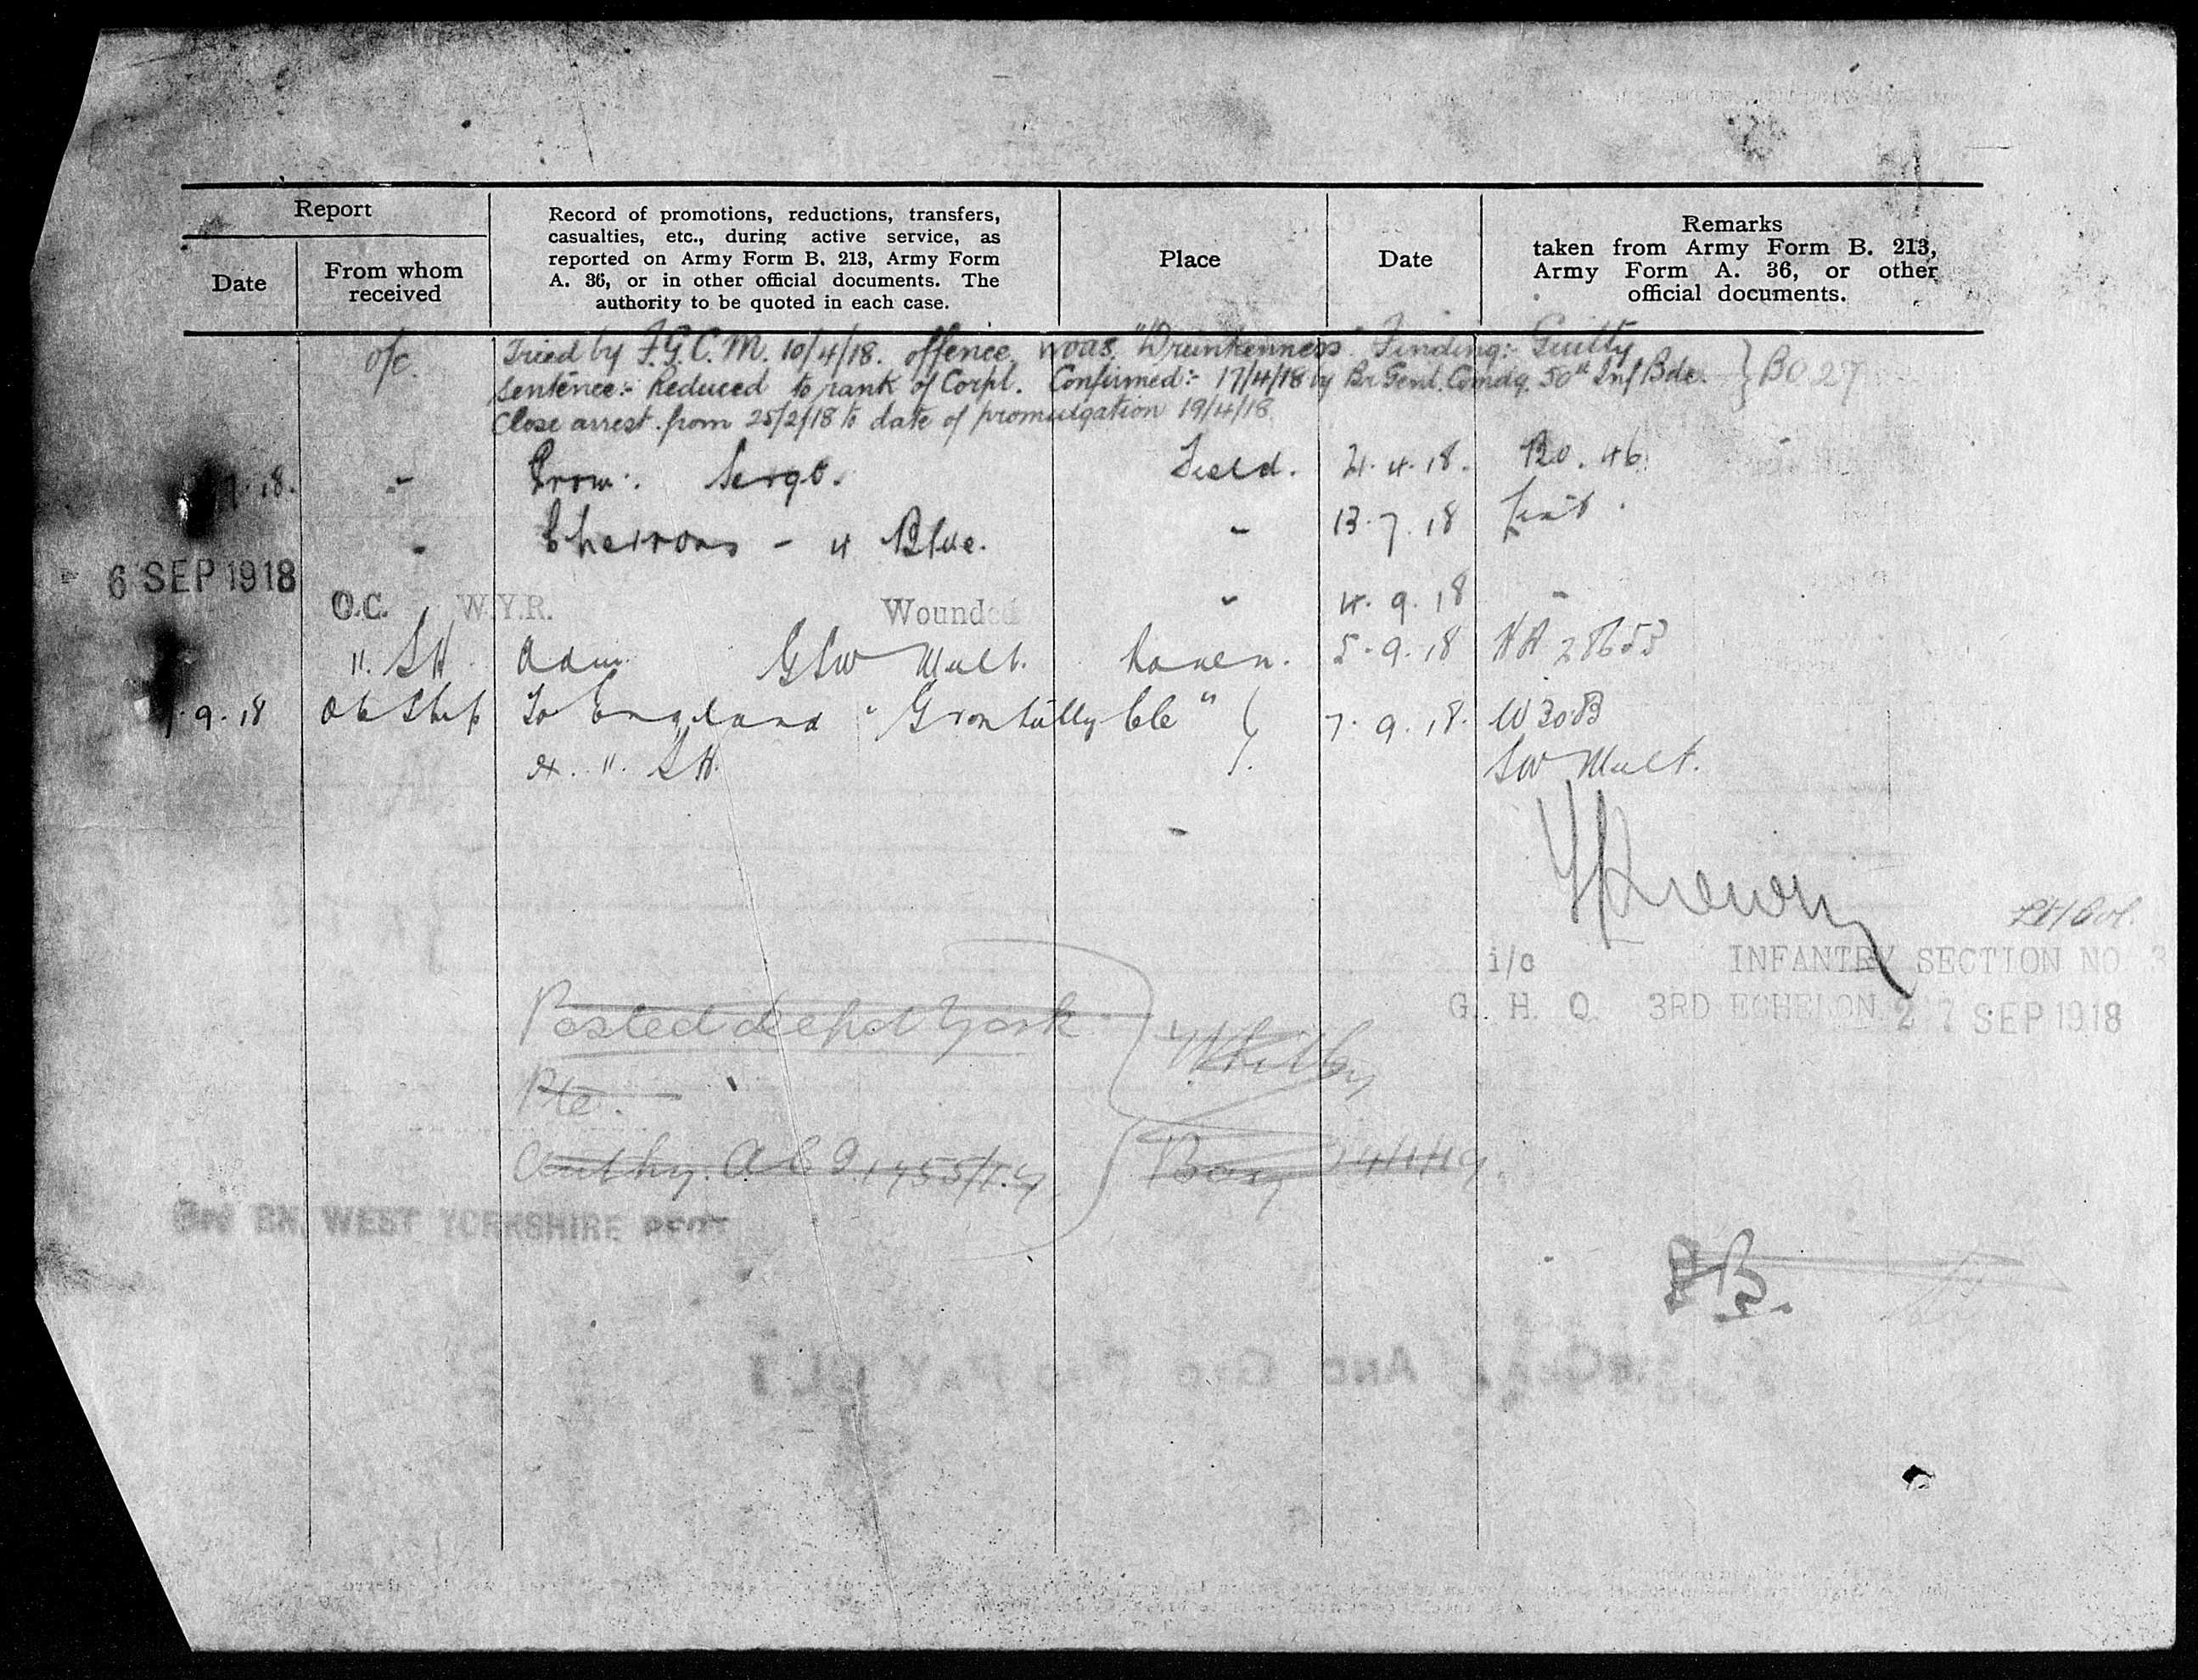 Report
Date
From whom
received
Record of promotions, reductions, transfers,
casualties, etc., during active service, as
reported on Army Form B. 213, Army Form
A. 36, or in other official documents. The
authority to be quoted in each case.
Place
Date
Remarks
taken from Army Form B. 213,
Army Form A. 36, or other
official documents.
o/c. Tried by F.G.C.M. 10/4/18. offence was "Drunkenness" Finding:- Guilty
Sentence:- Reduced to rank of Corpl. Confirmed:- 17/4/18 by Br Genl. Comdg. 50th Inf Bde. } BO 27
Close arrest from 25/2/18 to date of promulgation 19/4/18
7.18. " Prom: Sergt. Field. 21.4.18. BO. 46
" Chevrons - 4 Blue. " 13.7.18
6 SEP 1918
O.C. W.Y.R. Wounded " 4.9.18 "
11. SH Adm. GSW Mult. Rouen. 5.9.18 HA 28653
9.18 OC Ship To England "Grantully Cle" } 7.9.18. W3083
ex. 11. SH. SW Mult.
Lt/Col.
i/c INFANTRY SECTION NO 3
G. H. Q. 3RD ECHELON 27 SEP 1918
Posted depot York
Whitby
Pte.
Authy. 1455/1. Bay 4/1/19.
3rd BN. WEST YORKSHIRE REGT